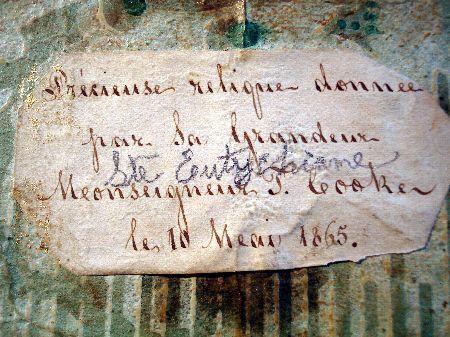 Précieuse relique donnée
par Sa Grandeur
Ste Eutychienne
Monseigneur T. Cooke
le 10 Mai 1865.